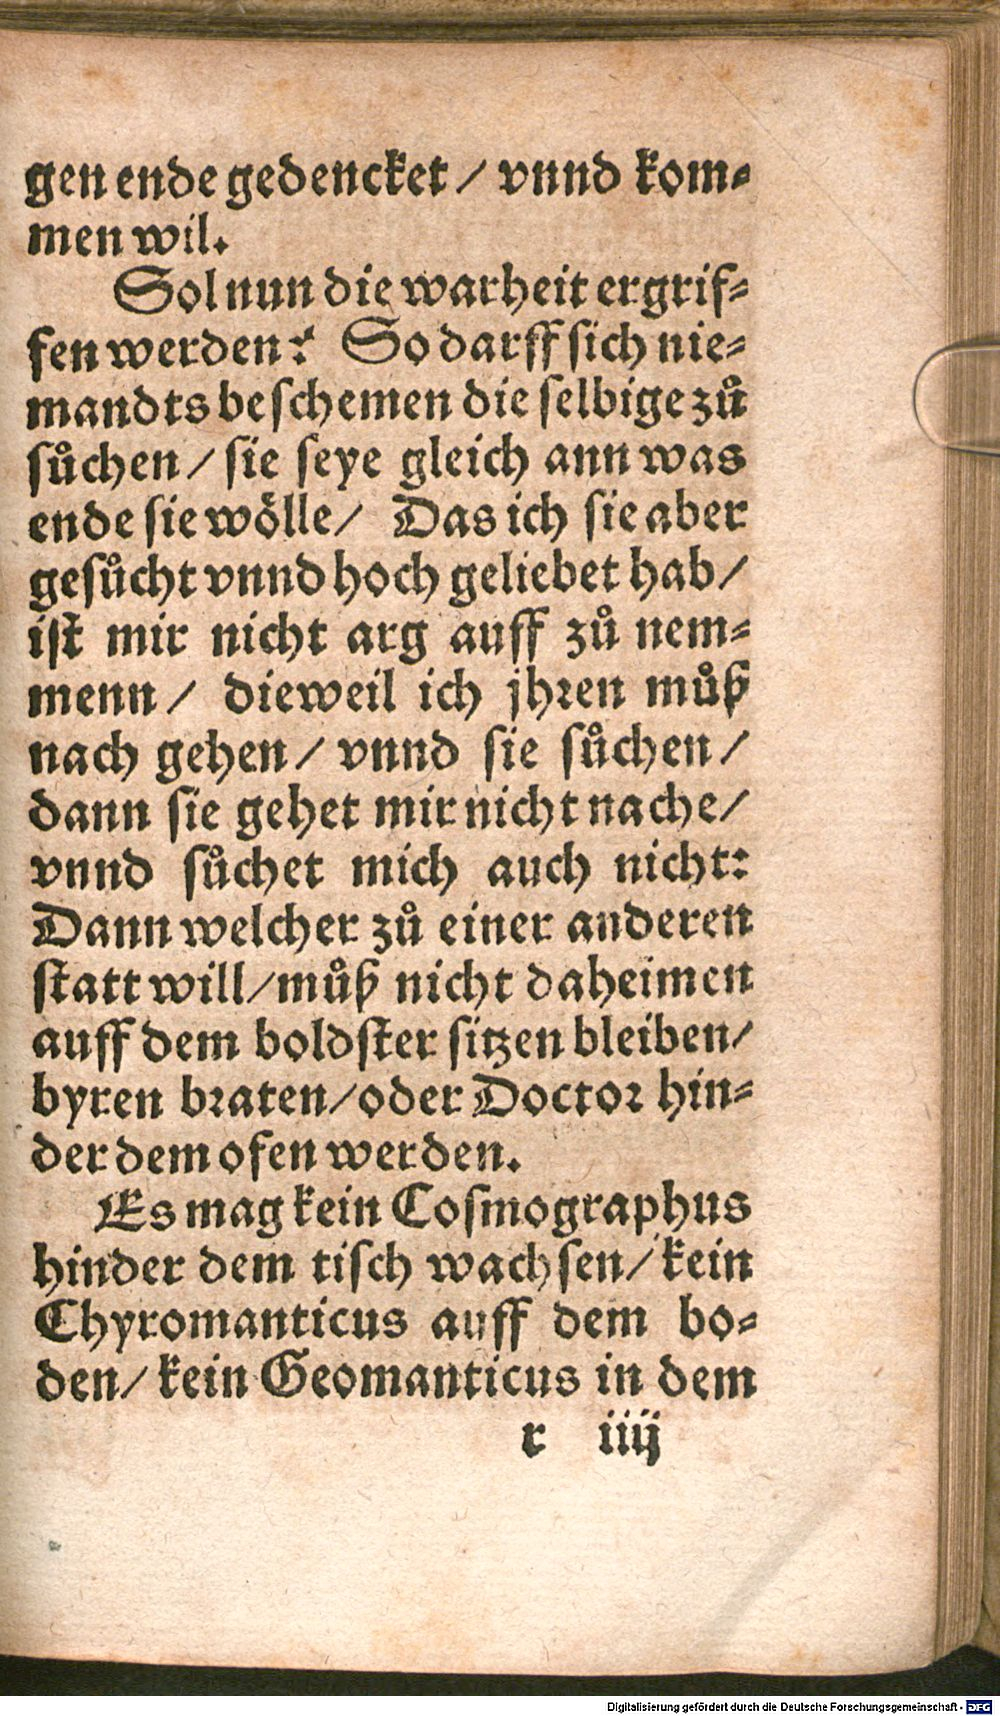 gen ende gedencket / vnnd kom⸗
men wil.
Sol nun die warheit ergrif⸗
fen werden? So darff sich nie⸗
mandts beschemen die selbige zů
sůchen / sie seye gleich ann was
ende sie wölle / Das ich sie aber
gesůcht vnnd hoch geliebet hab /
ist mir nicht arg auff zů nem⸗
menn / dieweil ich jhren můß
nach gehen / vnnd sie sůchen /
dann sie gehet mir nicht nache /
vnnd sůchet mich auch nicht:
Dann welcher zů einer anderen
statt will / můß nicht daheimen
auff dem boldster sitzen bleiben /
byren braten / oder Doctor hin⸗
der dem ofen werden.
Es mag kein Cosmographus
hinder dem tisch wachsen / kein
Chyromanticus auff dem bo⸗
den / kein Geomanticus in dem
r iiij
Digitalisierung gefördert durch die Deutsche Forschungsgemeinschaft - DFG